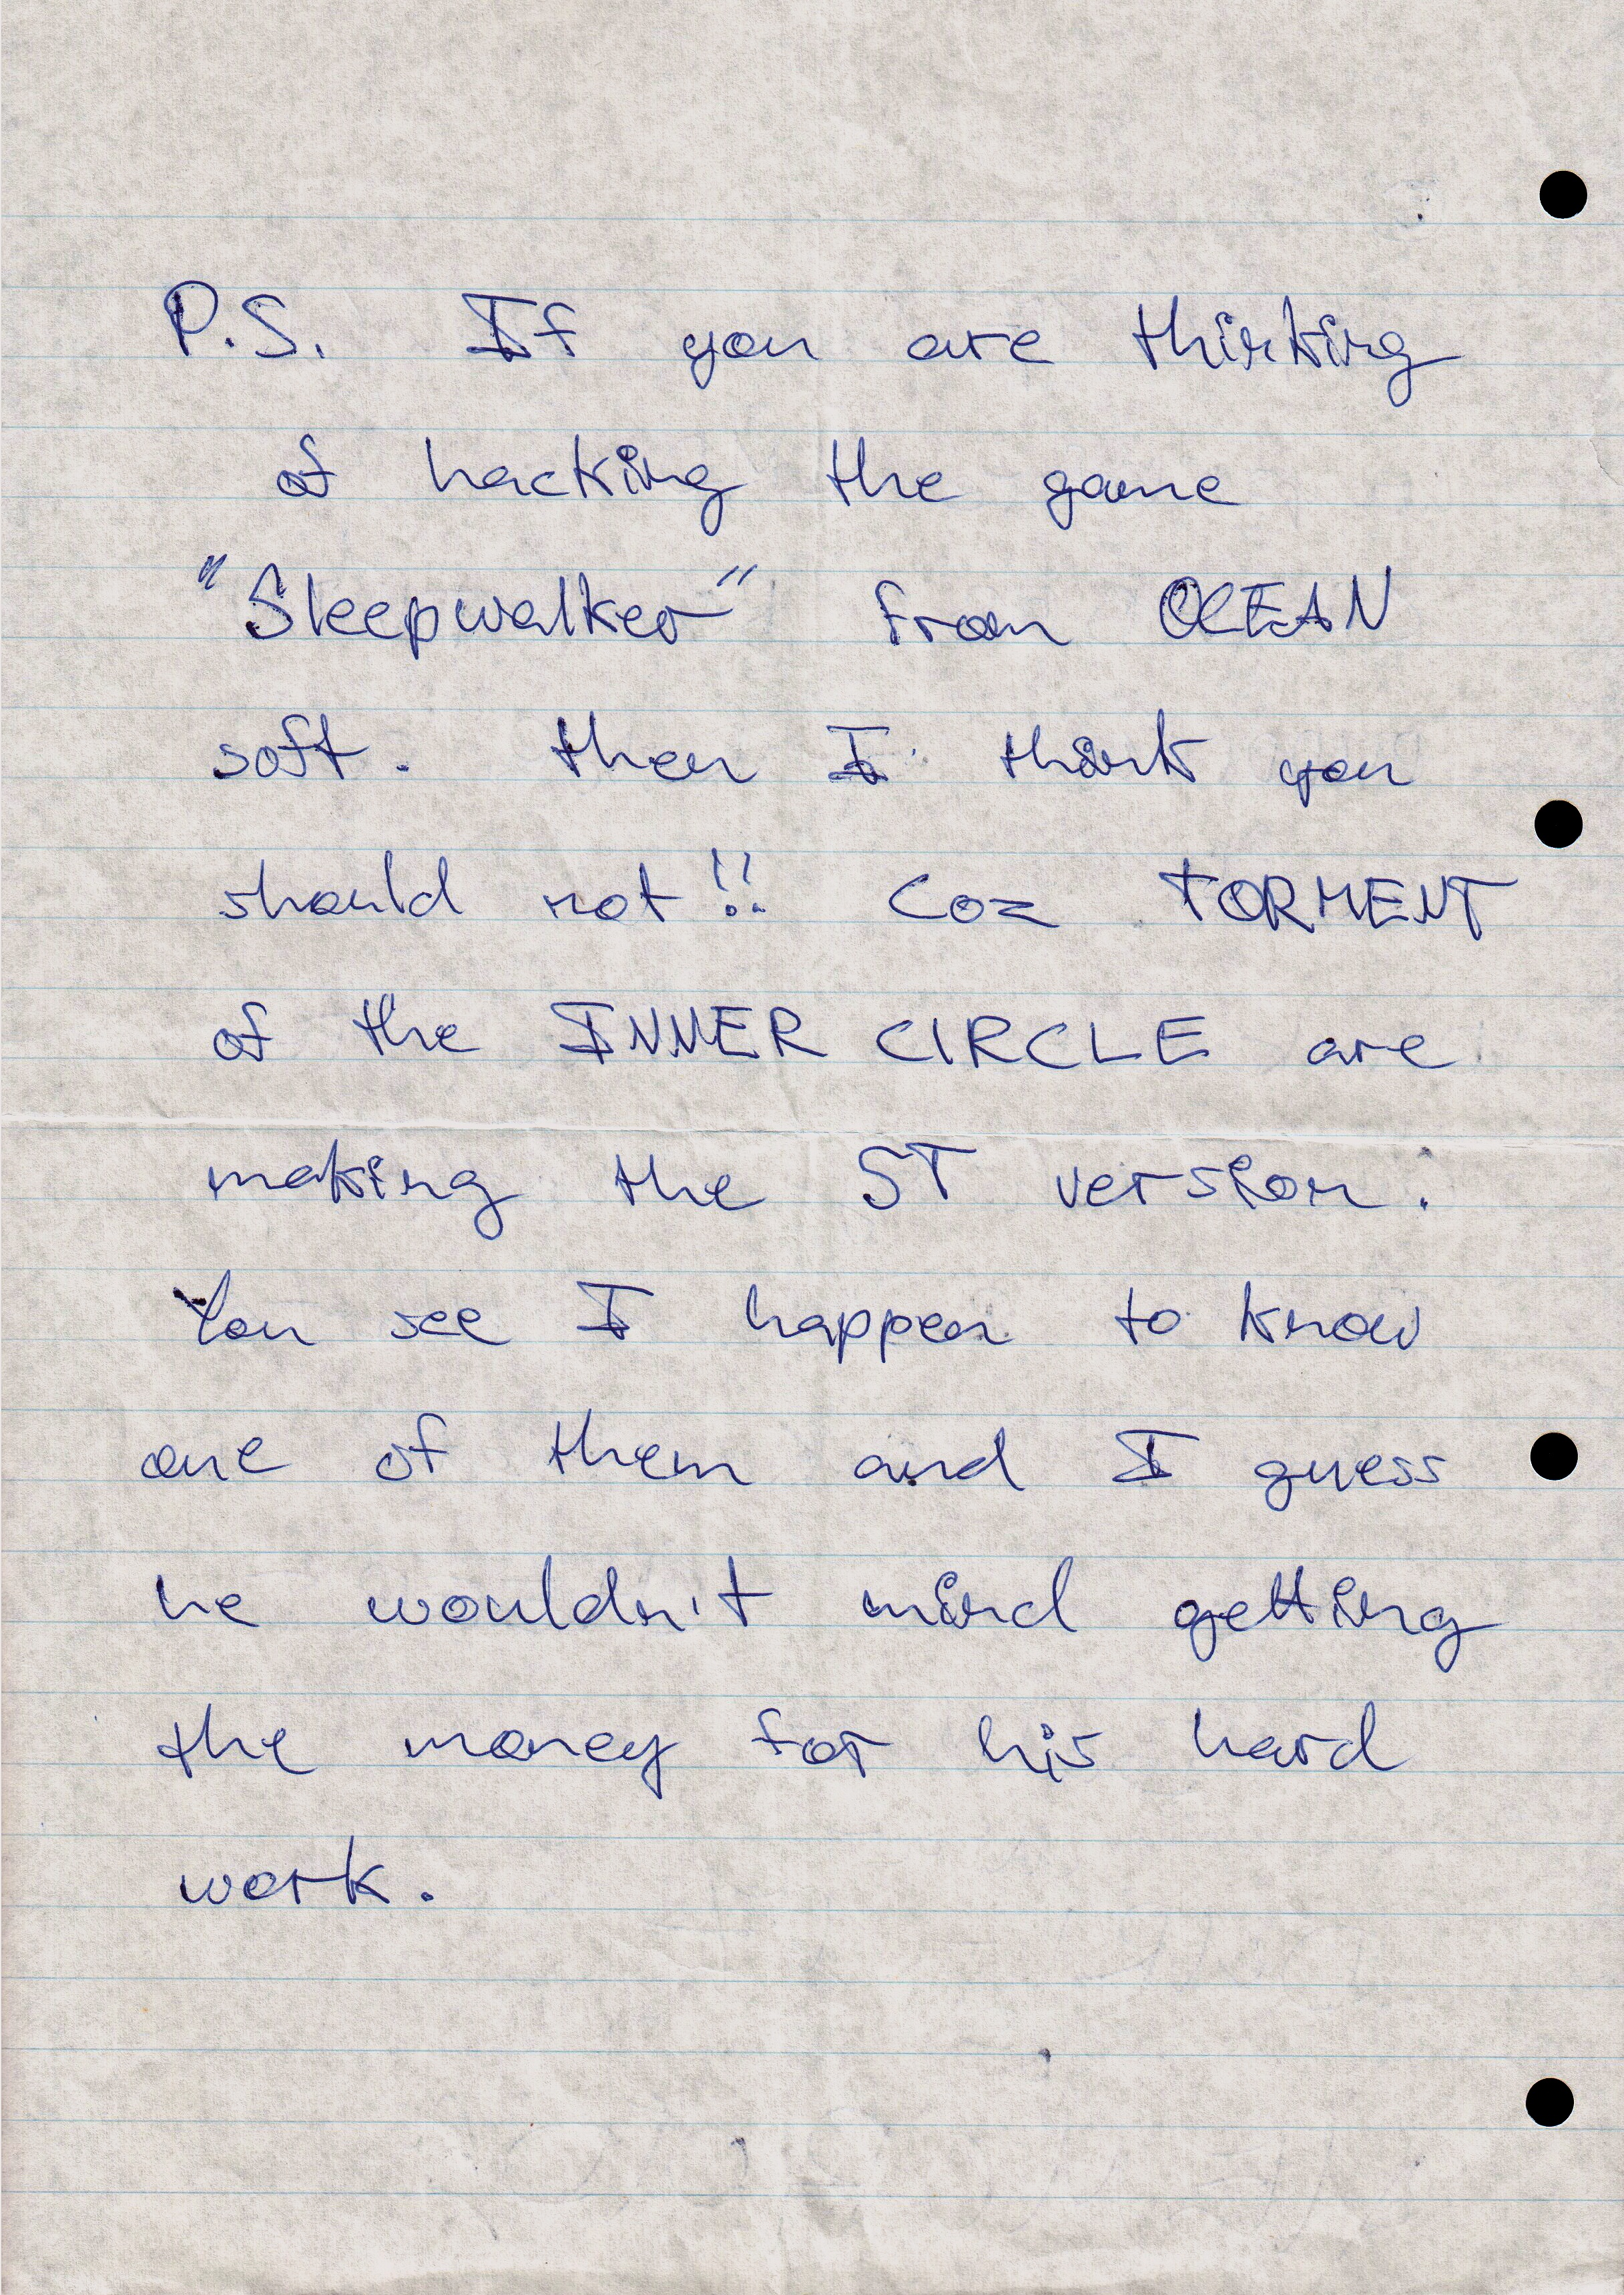 P.S. If you are thinking
of hacking the game
"Sleepwalker" from OCEAN
soft. then I think you
should not!! Coz TORMENT
of the INNER CIRCLE are
making the ST version.
You see I happen to know
one of them and I guess
he wouldn't mind getting
the money for his hard
work.